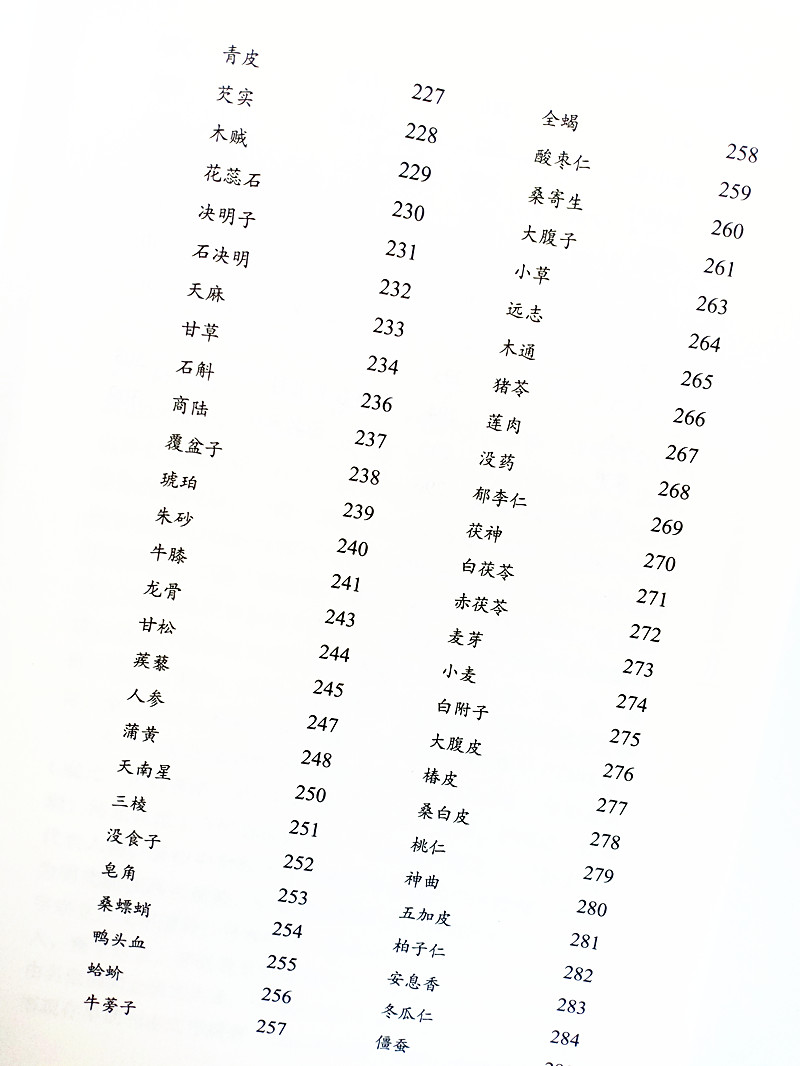 青皮 227
芡实 228
木贼 229
花蕊石 230
决明子 231
石决明 232
天麻 233
甘草 234
石斛 236
商陆 237
覆盆子 238
琥珀 239
朱砂 240
牛膝 241
龙骨 243
甘松 244
蒺藜 245
人参 247
蒲黄 248
天南星 250
三棱 251
没食子 252
皂角 253
桑螵蛸 254
鸭头血 255
蛤蚧 256
牛蒡子 257
全蝎 258
酸枣仁 259
桑寄生 260
大腹子 261
小草 263
远志 264
木通 265
猪苓 266
莲肉 267
没药 268
郁李仁 269
茯神 270
白茯苓 271
赤茯苓 272
麦芽 273
小麦 274
白附子 275
大腹皮 276
椿皮 277
桑白皮 278
桃仁 279
神曲 280
五加皮 281
柏子仁 282
安息香 283
冬瓜仁 284
僵蚕